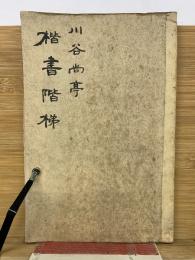 川谷尚亭
楷書階梯